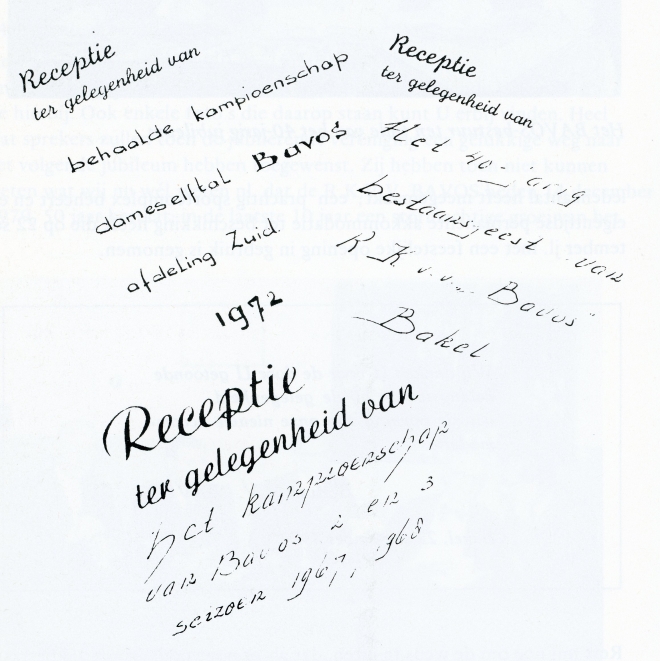 Receptie
ter gelegenheid van
behaalde kampioenschap
dameselftal Bavos
afdeling Zuid.
1972
Receptie
ter gelegenheid van
Het 40-jarig
bestaansfeest van
R.K.v.v. "Bavos"
Bakel
Receptie
ter gelegenheid van
het kampioenschap
van Bavos 2 en 3
seizoen 1967, 1968